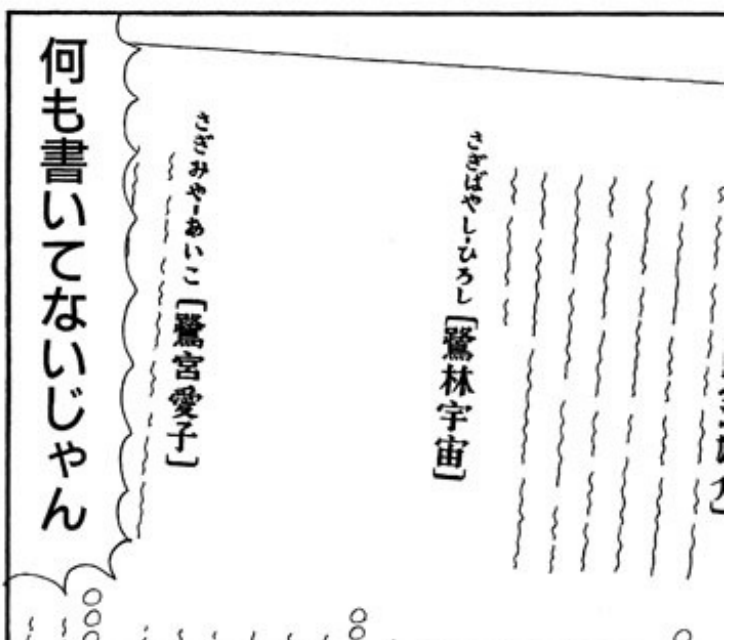 さぎばやし・ひろし［鷺林宇宙］
さぎみや・あいこ［鷺宮愛子］
何も書いてないじゃん